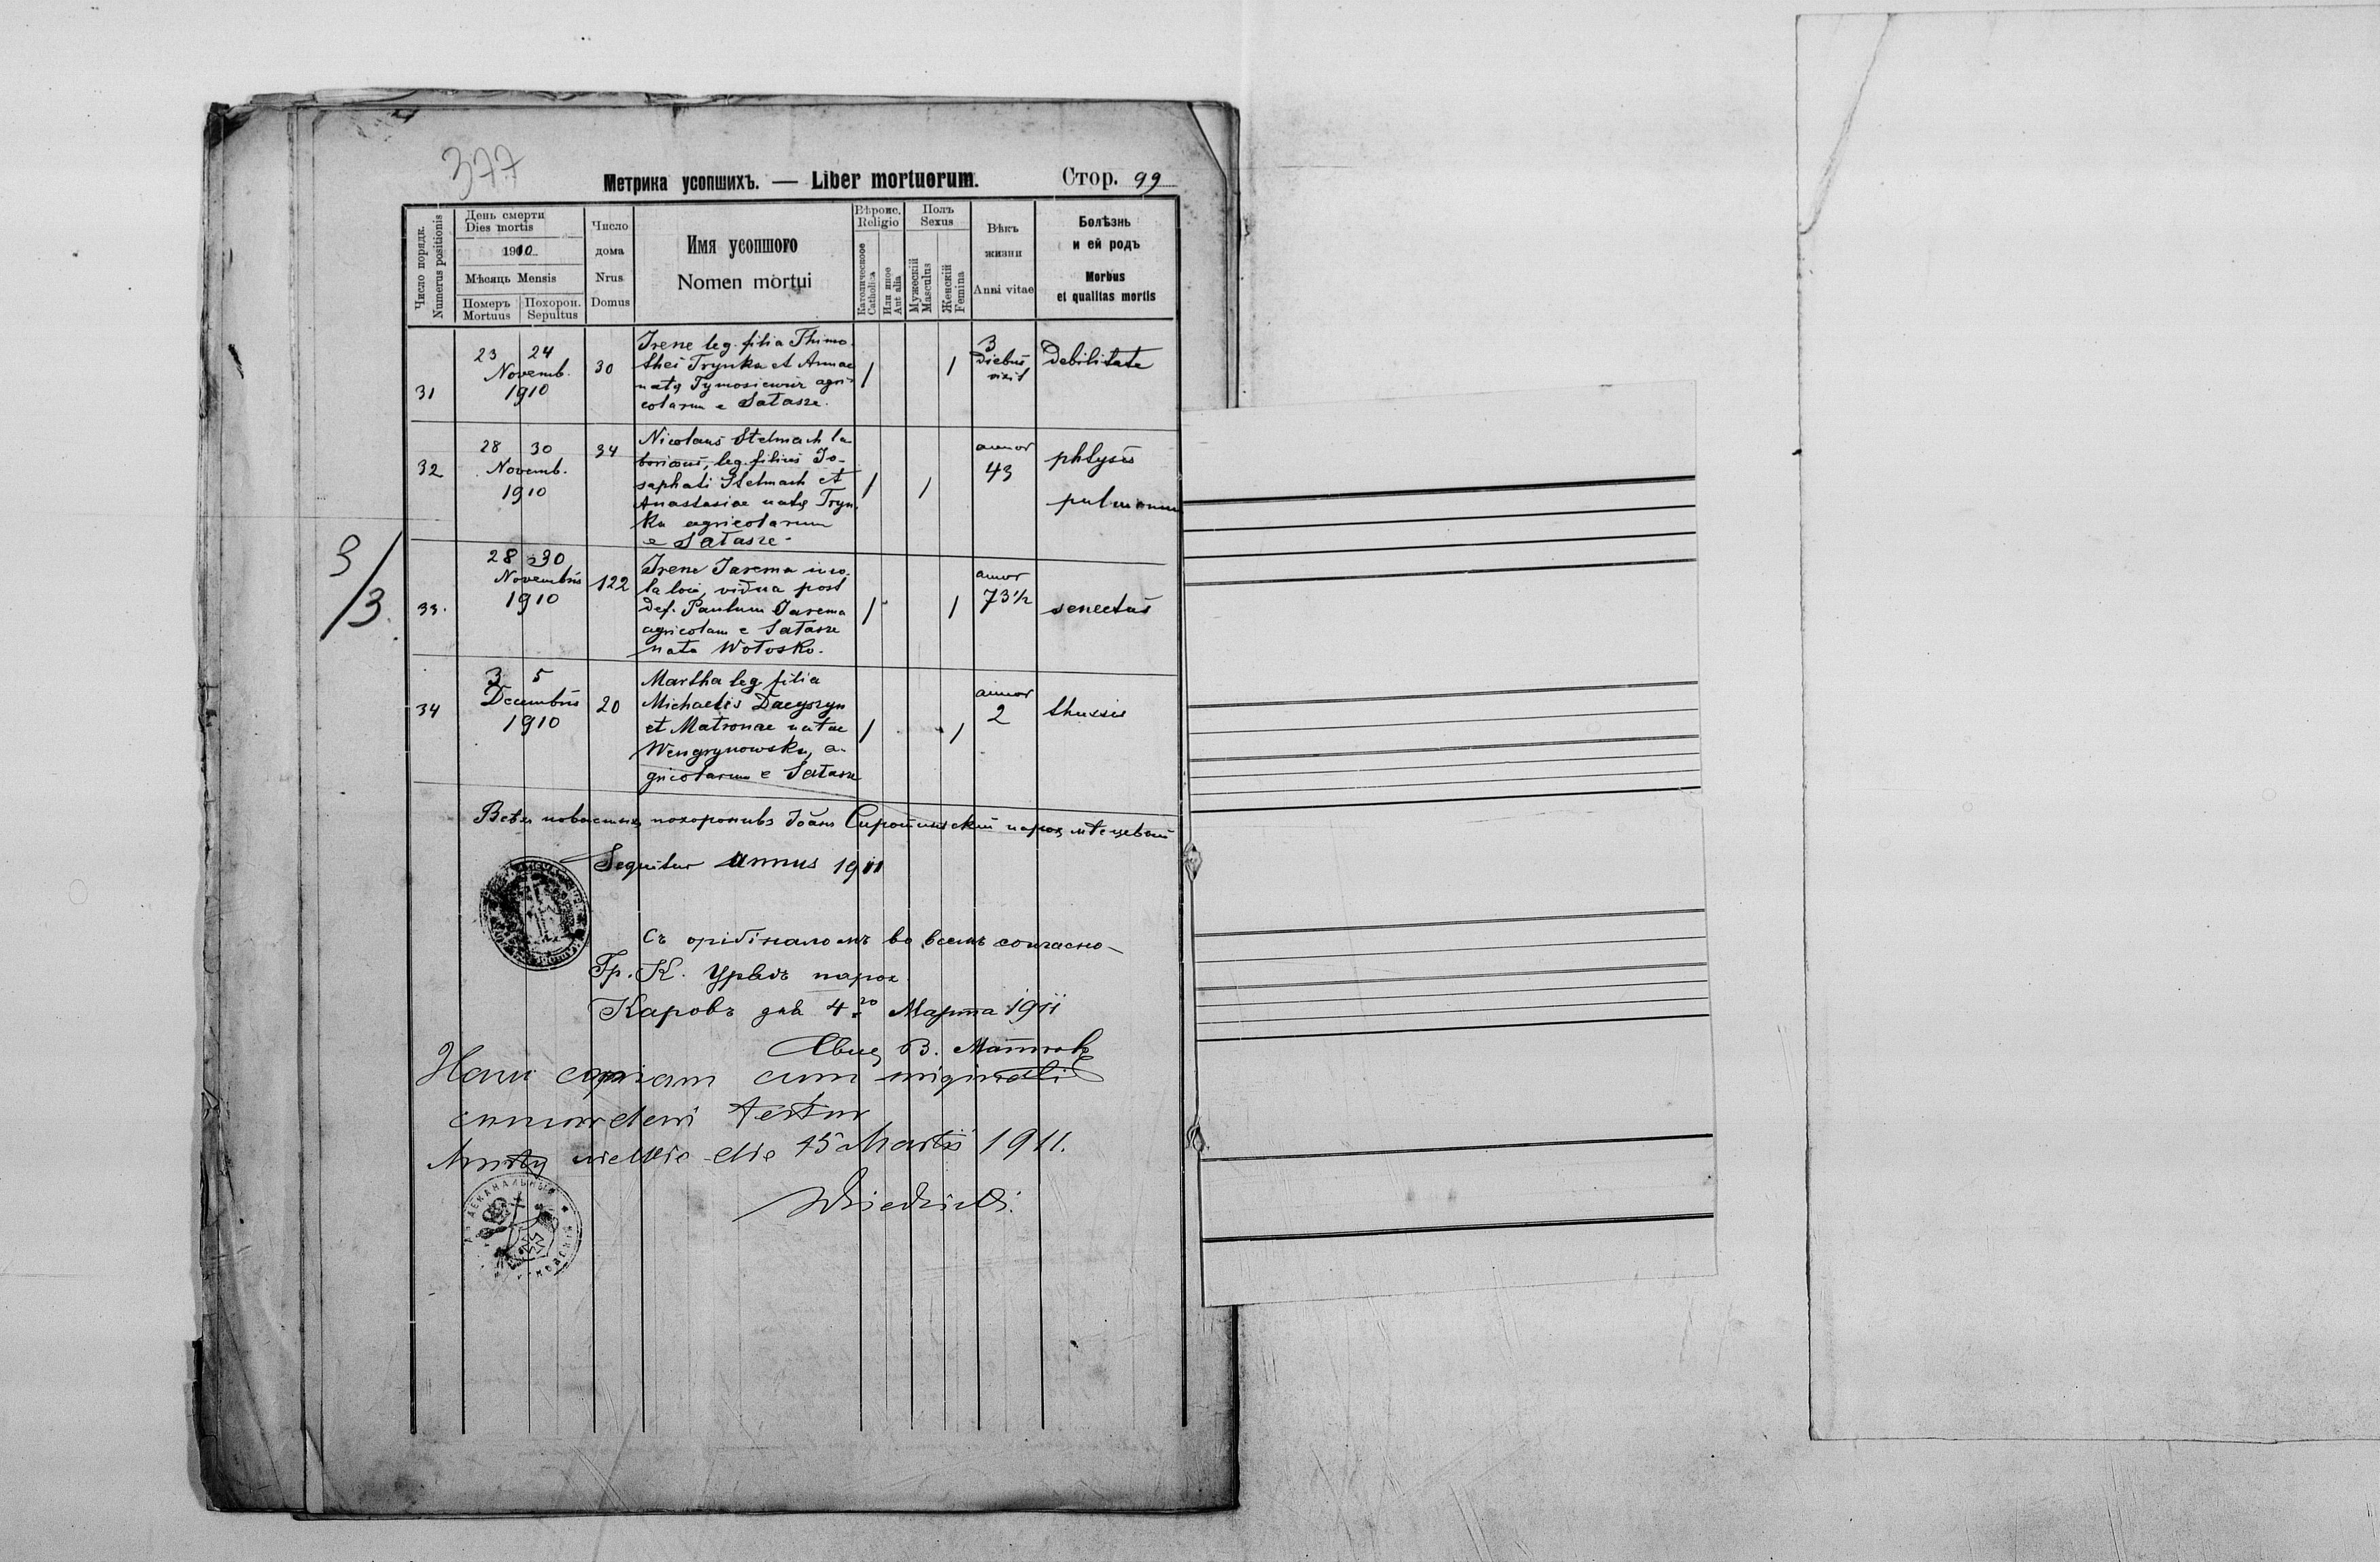 377
Метрика усопшихъ. — Liber mortuorum. Стор. 99
Число порядк. Numerus positionis
День смерти Dies mortis
1910
Мѣсяць Mensis
Померъ Mortuus
Похорон. Sepultus
Число дома Nrus Domus
Имя усопшого
Nomen mortui
Вѣроис. Religio
Католическое Catholica
Или иное Aut alia
Полъ Sexus
Мужескій Masculus
Женскій Femina
Вѣкъ жизни Anni vitae
Болѣзнь и ей родъ
Morbus et qualitas mortis
31
23 24
Novemb.
1910
30
Irene leg. filia Thimo-
thei Trynka et Annae
natę Tymosiewicz agri-
colarum e Sałasze.
1 1
3
Diebus
vixit
Debilitate
32
28 30
Novemb.
1910
34
Nicolaus Stelmach la-
leg. filius Jo-
saphati Stelmach et
Anastasiae natę Tryn
ka agricolarum
e Sałasze.
1 1
annor
43
phtysis
pulmonum
3/3.
33.
28 30
Novembris
1910
122
Irene Jarema
vidua post
def. Paulum Jarema
agricolam e Sałasze
nata Wołosko.
1 1
annor
73 1/2
senectus
34
3 5
Decembris
1910
20
Martha leg. filia
Michaelis Dacyszyn
et Matronae natae
Wengrynowska, a-
gricolarum e Sałasze
1 1
annor
2
thussis
Всѣхъ похоронивъ Іоанъ парох мѣсцевый
Sequitur annus 1911
Съ оріґіналомъ во всемъ согласно
Гр. К. Урядъ парох.
Каровъ дня 4.го Марта 1911
В.
Hanc copiam cum originali
concordem testor
die 15 Martii 1911.
ДЕКАНАЛЬНЫЙ